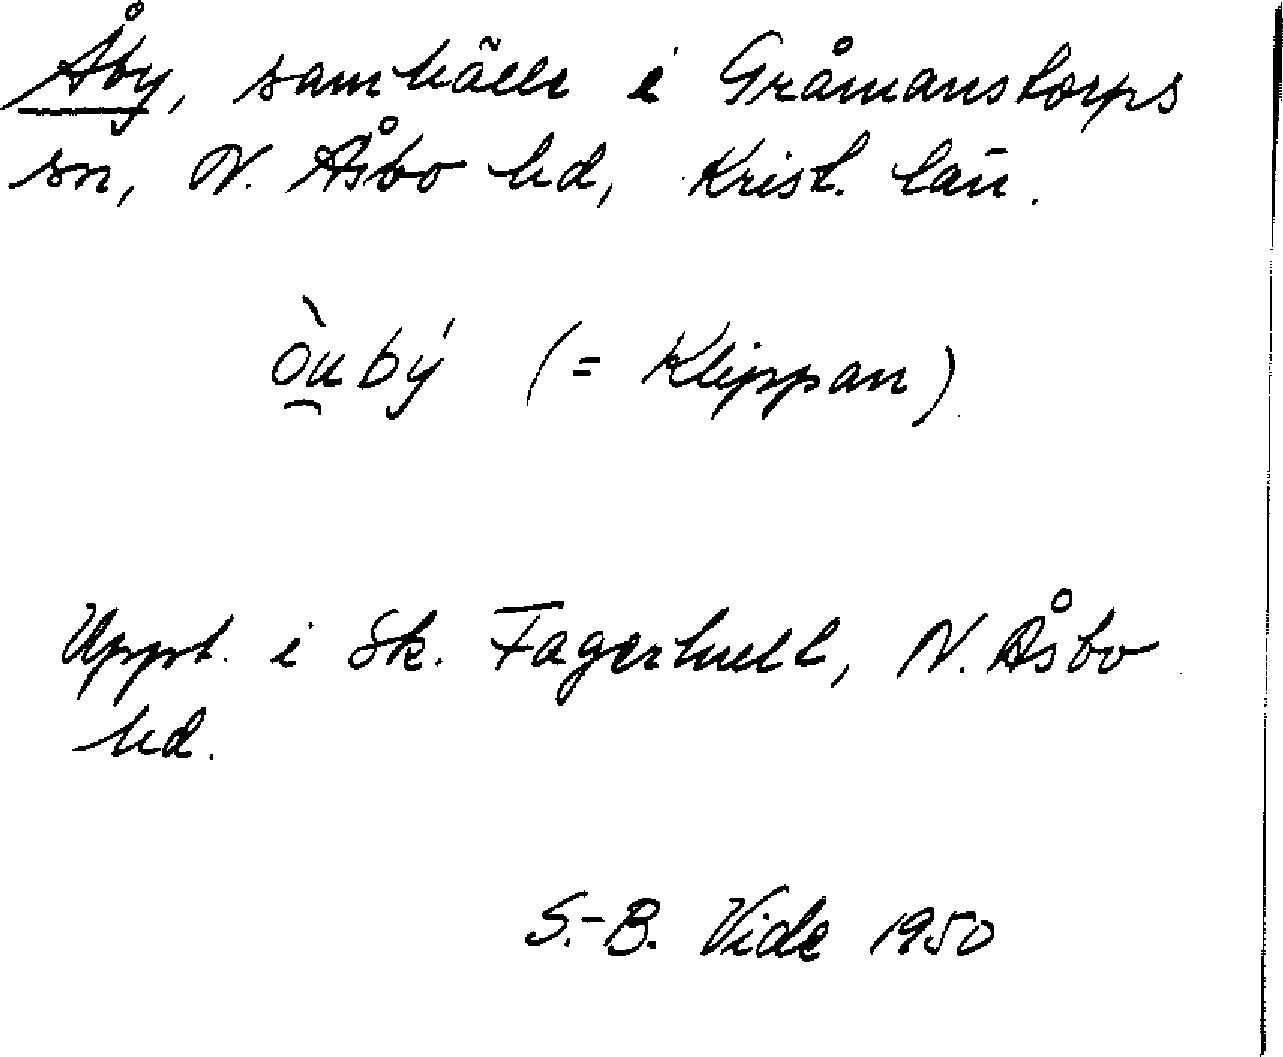 Åby, samhälle i Gråmanstorps
sn, N. Åsbo hd, Krist. län.
òu̯bý (= Klippan)
Uppt. i Sk. Fagerhult, N. Åsbo
hd.
S.-B. Vide 1950